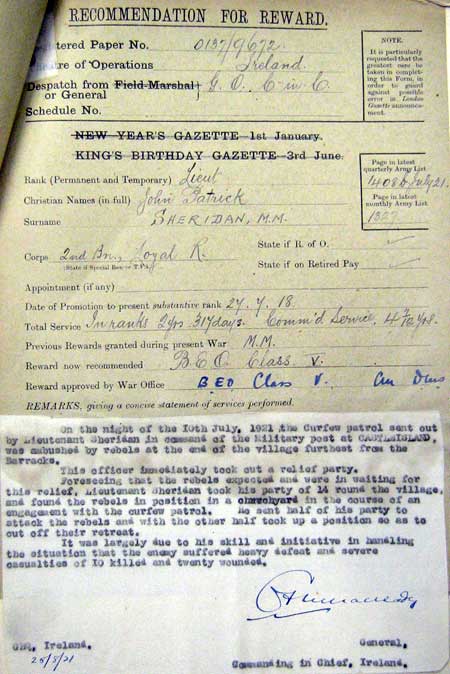 RECOMMENDATION FOR REWARD.
stered Paper No. 0137/9672
tre of Operations Ireland
Despatch from Field-Marshal or General G.O. C-in-C.
Schedule No.
NOTE.
It is particularly
requested that the
greatest care be
taken in complet-
ing this Form, in
order to guard
against possible
error in London
Gazette announce-
ment.
NEW YEAR'S GAZETTE—1st January.
KING'S BIRTHDAY GAZETTE—3rd June.
Page in latest
quarterly Army List
408b July 21.
Page in latest
monthly Army List
Rank (Permanent and Temporary) Lieut
Christian Names (in full) John Patrick
Surname SHERIDAN, M.M.
Corps 2nd Bn., Loyal R.
(State if Special Res. or T.F.)
State if R. of O.
State if on Retired Pay
Appointment (if any)
Date of Promotion to present substantive rank 27.7.18.
Total Service In ranks 2 yrs 317 days. Comm'd Service, 4
Previous Rewards granted during present War M.M.
Reward now recommended B.E.O. Class V.
Reward approved by War Office BEO Class V.
REMARKS, giving a concise statement of services performed.
On the night of the 10th July, 1921 the Curfew patrol sent out
by Lieutenant Sheridan in command of the Military post at CASTLEISLAND,
was ambushed by rebels at the end of the village furthest from the
Barracks.
This officer immediately took out a relief party.
Foreseeing that the rebels expected and were in waiting for
this relief, Lieutenant Sheridan took his party of 14 round the village,
and found the rebels in position in a churchyard in the course of an
engagement with the curfew patrol. He sent half of his party to
attack the rebels and with the other half took up a position so as to
cut off their retreat.
It was largely due to his skill and initiative in handling
the situation that the enemy suffered heavy defeat and severe
casualties of 10 killed and twenty wounded.
GHQ, Ireland.
25/8/21
General,
Commanding in Chief, Ireland.